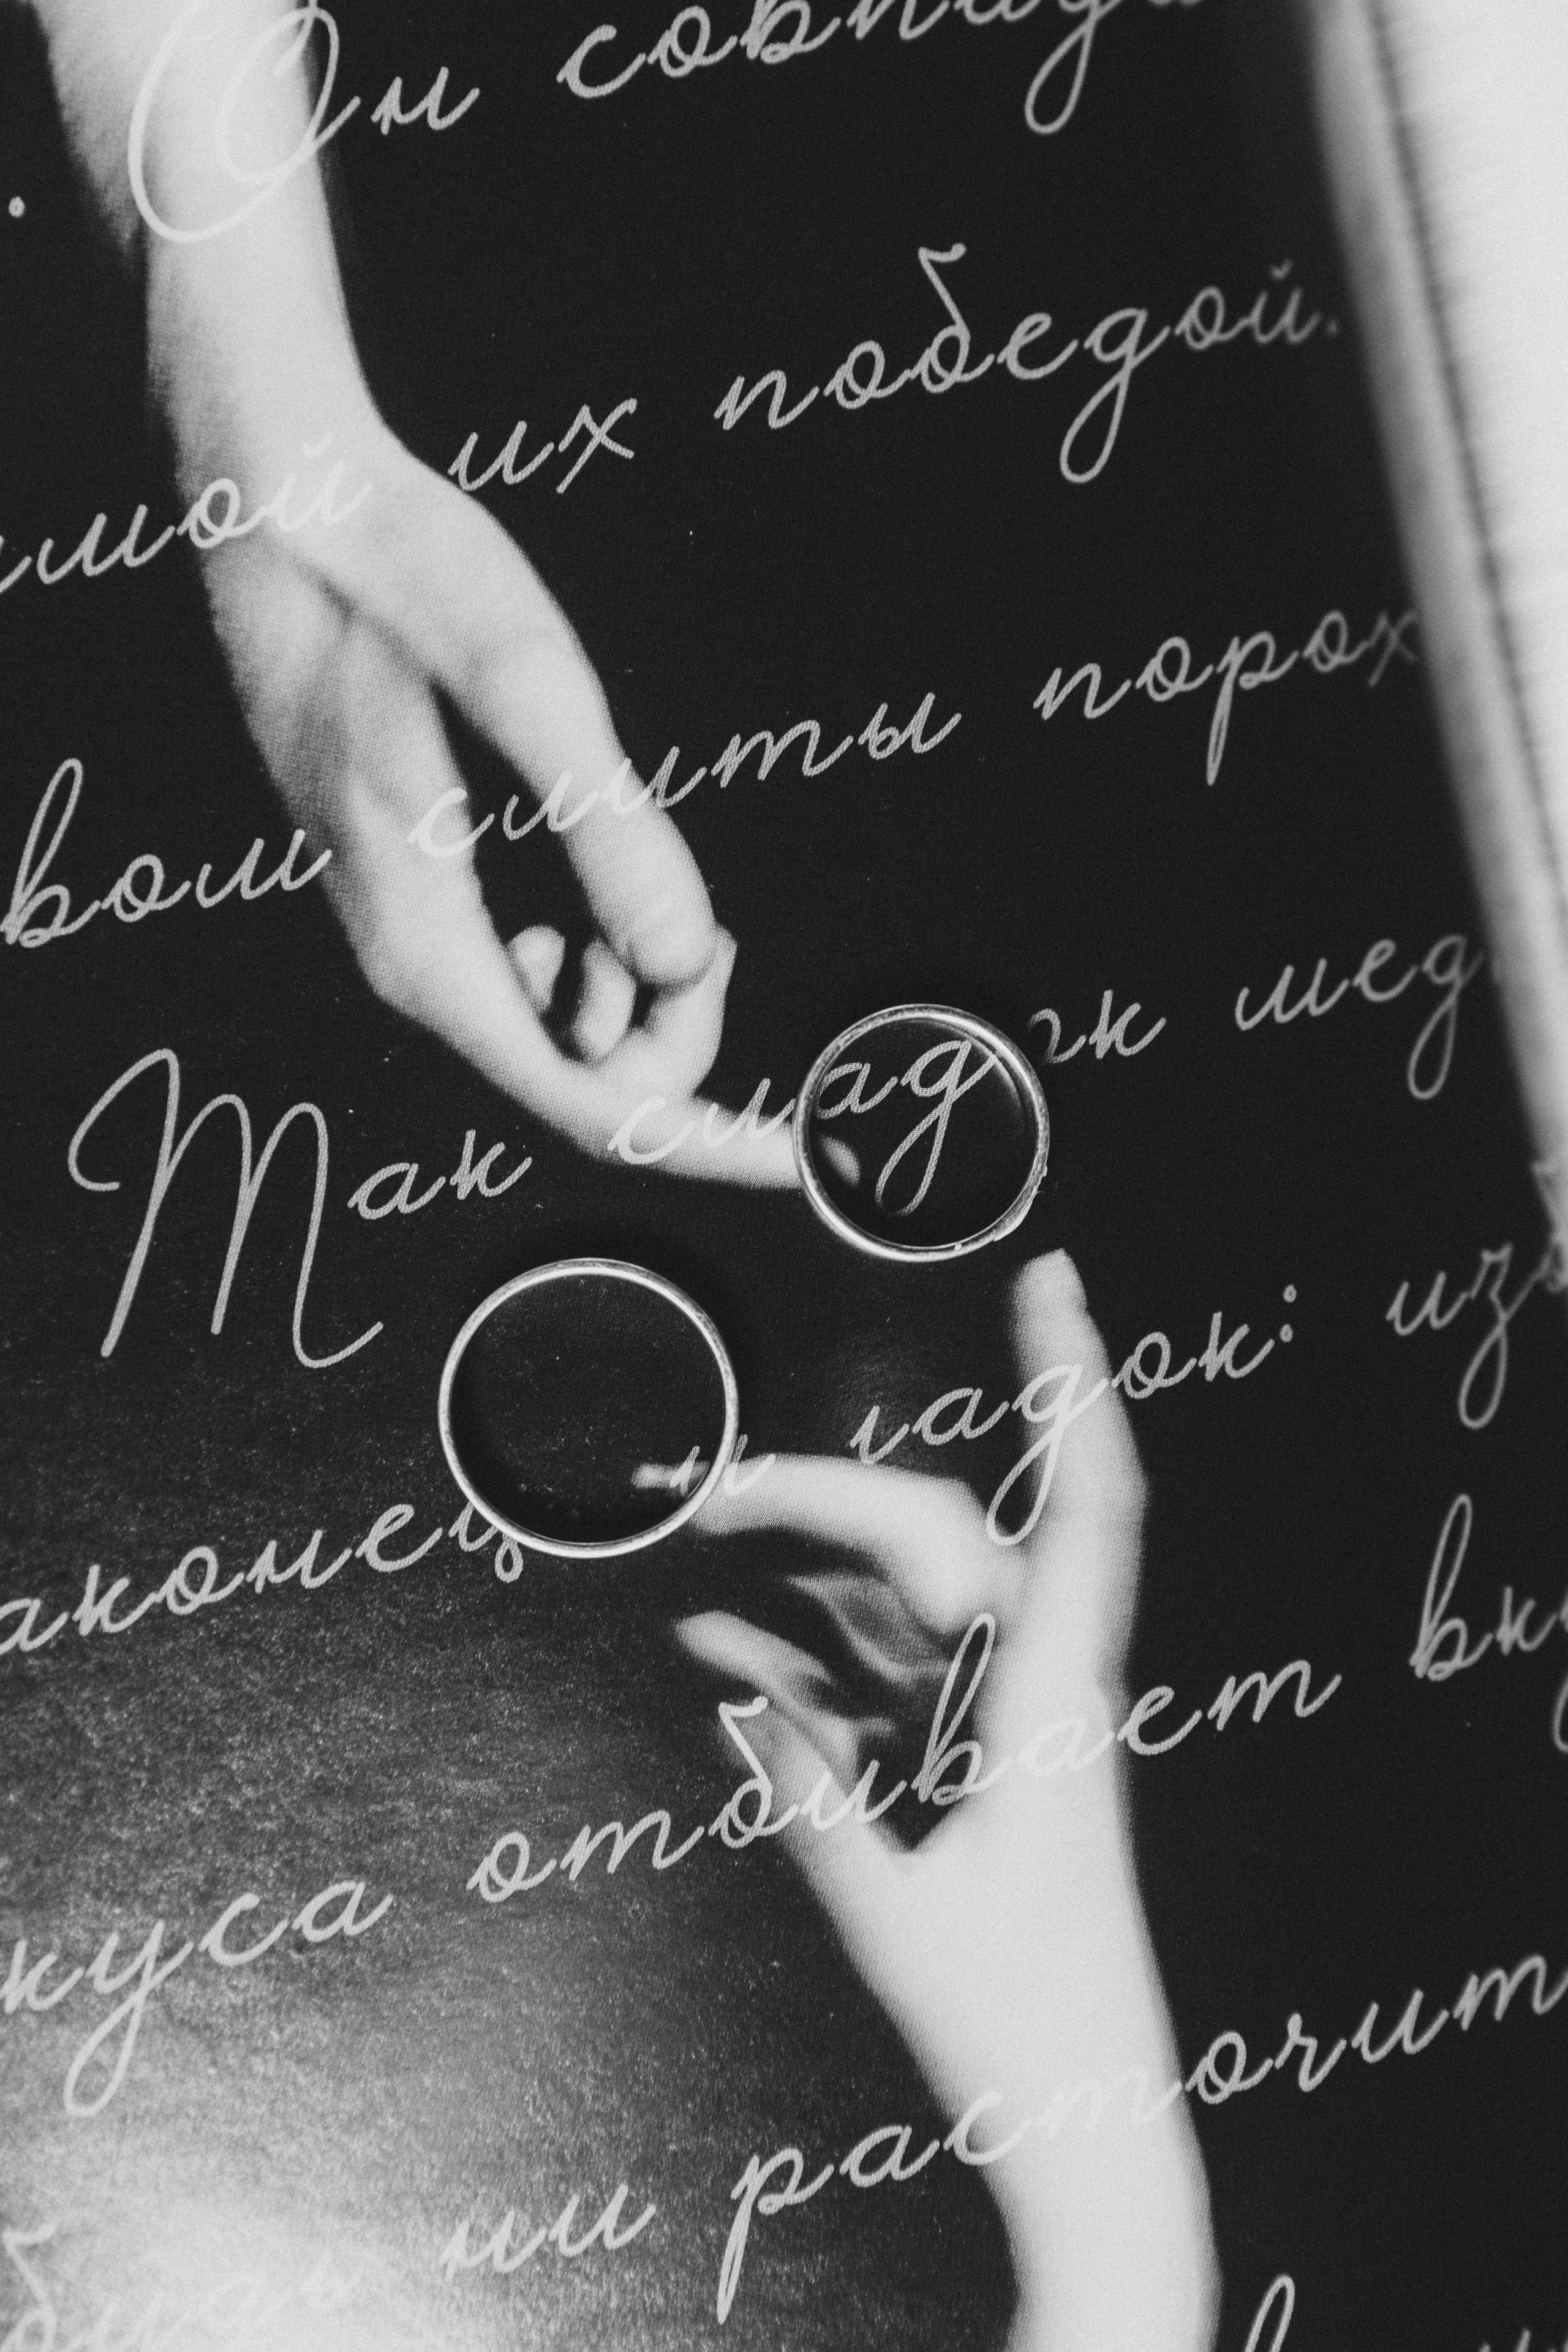 Он совпад
мой их победой.
вом слиты порох
Так сладок мед
аконец и гадок: изб
куса отбивает вку
ни расточит